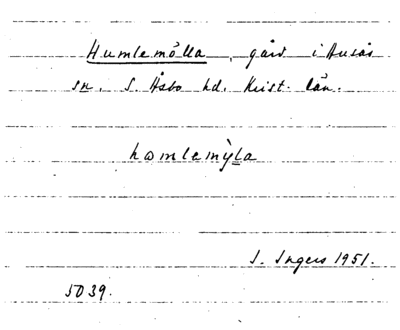 Humlemölla, gård i Ausås
sn. S. Åsbo hd. Krist. län.
hωmlemỳla
I. Ingers 1951.
5039.